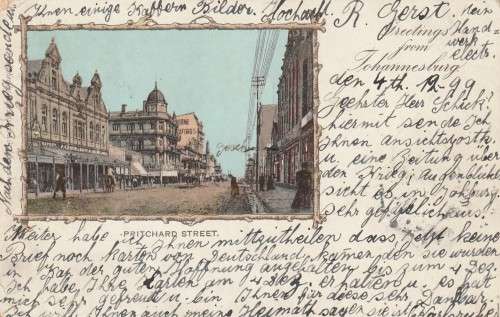 Ihnen einige Kaffern Bilder. Hochacht. R. Gerst.
Nach dem Krieg senden
Greetings
from
Johannesburg
Handwerk
den 4th. 12-99
Geehrter Herr Schick!
hiermit sende Ich
Ihnen Ansichtspostk.
u. eine Zeitung über
den Krieg; Augenblick
sieht es in Johbur
sehr gefährlich aus!
PRITCHARD STREET.
Weiter habe ich Ihnen mitzutheilen dass jetzt keine
Brief noch Karten von Deutschland kamen den sie wurden
in Kap der guten Hoffnung angehalten bis zum 4 Dez.
Ich habe Ihre Karten am 4 Dez. erhalten u. es hat
mich sehr gefreut u. bin Ihnen für diese sehr Dankbar.
Ihnen auch meine Heimath